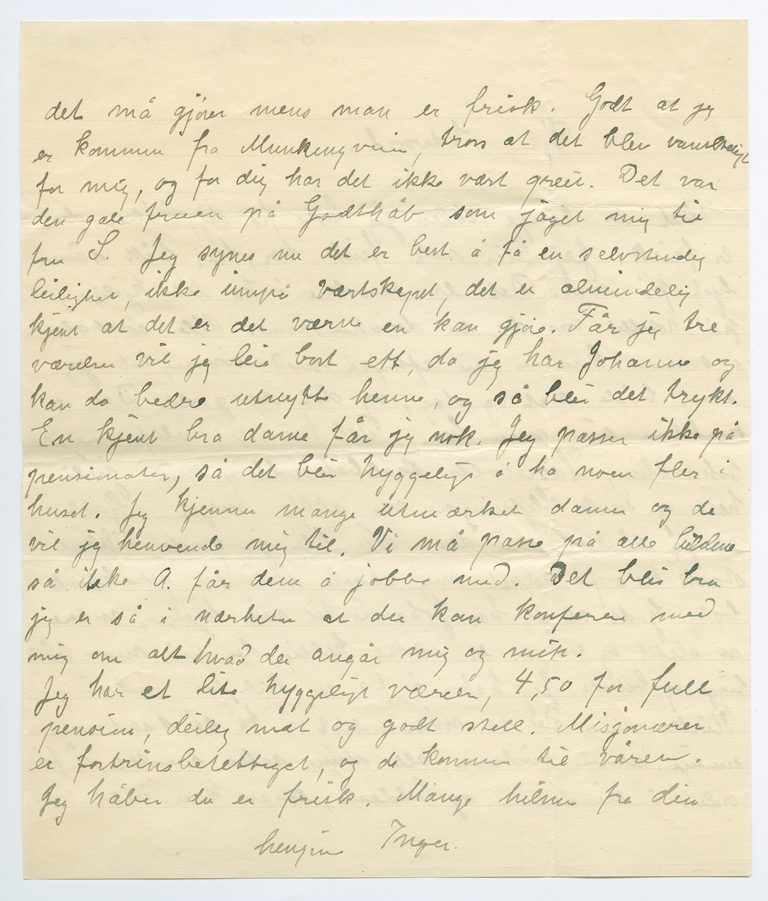 det må gjøres mens man er frisk. Godt at jeg
er kommen fra Munkengveien, trods at det blev vanskeligt
for mig, og for dig har det ikke vært greit. Det var
den gale fruen på Godthåb som jaget mig til
fru S. Jeg synes nu det er best å få en selvstendig
leilighet, ikke innpå vertskapet, det er almindelig
kjent at det er det værste en kan gjøre. Får jeg tre
værelser vil jeg leie bort ett, da jeg har Johanne og
kan da bedre utnytte henne, og så blir det trykt.
En kjent bra dame får jeg nok. Jeg passer ikke på
pensionater, så det blir hyggeligt å ha noen fler i
huset. Jeg kjenner mange utmærket damer og de
vil jeg henvende mig til. Vi må passe på alle bildene
så ikke A. får dem å jobbe med. Det blir bra
jeg er så i nærheten at du kan konferere med
mig om alt hvad der angår mig og mitt.
Jeg har et lite hyggeligt værelse, 4,50 for full
pension, deilig mat og godt stell. Misjonærer
er fortrinsberettiget, og de kommer til våren.
Jeg håber du er frisk. Mange hilsner fra din
hengivne Inger.